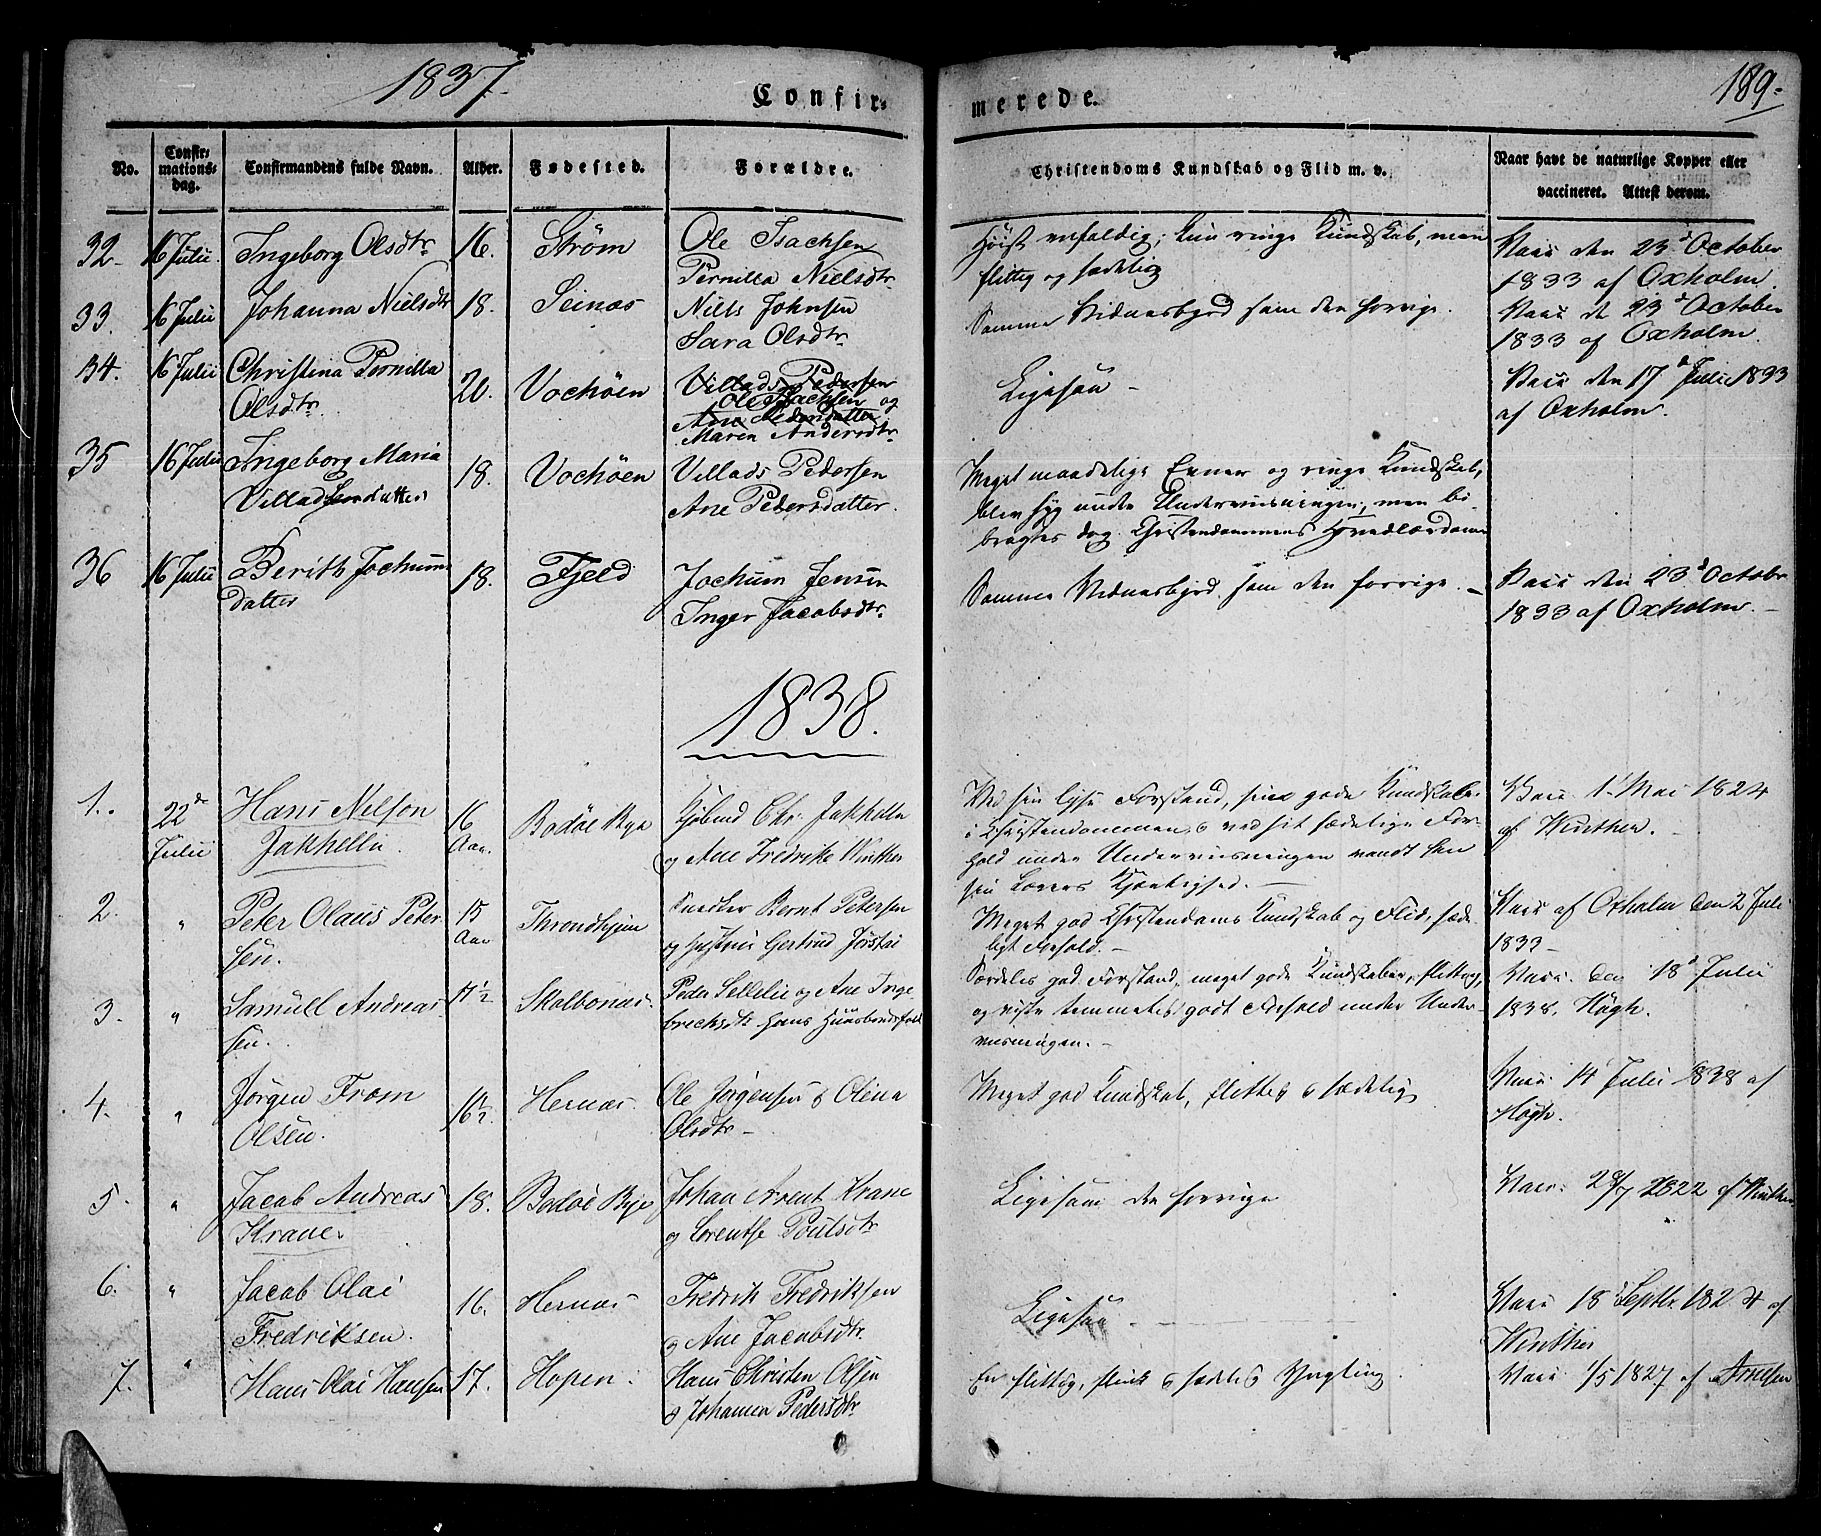 1837.
Confir-
merede.
189.
No.
Confir-
mations-
dag.
Confirmandens fulde Navn.
Alder.
Fødested.
Forældre.
Christendoms Kundskab og Flid m. v.
Naar havt de naturlige Kopper eller
vaccineret. Attest derom.
32. 16 Julii Ingeborg Olsdtr 16. Strøm Ole Isachsen
Pernilla Nielsdtr
Høist enfoldig; kun ringe Kundskab, men
flittig og sædelig
Vacc den 23d October
1833 af Oxholm.
33. 16 Julii Johanna Nielsdtr 18. Seinæs Niels Johnsen
Sara Olsdtr
Samme Vidnesbyrd som den forrige.
Vacc de 23d October
1833 af Oxholm.
34. 16 Julii Christina Pernilla
Olsdtr. 20. Vochöen Villads Pedersen
Ole Isachsen og
Ane Pedersdatter
Maren Andersdtr
Ligesaa -
Vacc den 17d Julii 1833
af Oxholm.
35 16 Julii Ingeborg Maria
Villadsendatter 18. Vochöen Villads Pedersen
Ane Pedersdatter.
Meget maadelige Evner og ringe Kundskab,
blev syg under Underviisningen, men bi-
bragtes dog Christendommens Hovedlærdomme
36 16 Julii Berith Jochum
datter 18. Fjeld Jochum Jensen
Inger Jacobsdtr.
Samme Vidnesbyrd som den forrige. -
Vacc den 23d Octobr
1833 af Oxholm. -
1838.
1. 22de
Julii
Hans Nelson
Jakhelln.
16
Aar.
Bodøe Bye Chr. Jakhelln
og Ane Fredrikke Winther
Ved sin lyse Forstand, sine gode Kundskaber
i Christendommen & ved sit sædelige For-
hold under Underviisningen vandt han
sin Lærers Kjærlighed. -
Vacc. 1. Mai 1824
af Winther. -
2. " Peter Olaus Peter-
sen. 15
Aar Throndhjem Snedker Bernt Petersen
og Gertrud
Meget god Christendoms Kundskab og Flid, sæde-
ligt Forhold. -
Vacc af Oxholm den 2 Juli
1833 -
3. " Samuel Andreas-
sen. 17½ Skolbonæs. Peder og Ane Inge-
brechsdtr. Hans
Særdeles god Forstand, meget gode Kundskaber, flittig,
og godt Forhold under Under-
viisningen. -
Vacc. den 18d Julii
1838, Høgh.
4. " Jørgen From
Olsen. 16½. Hernæs. Ole Jørgensen & Olena
Olsdtr -
Meget god Kundskab, flittig & sædelig
Vacc. 14 Julii 1838 af
Høgh.
5. " Jacob Andreas
Krane. 18. Bodøe Bye Johan Arent Krane
og Lorentse Poulsdtr
Ligesom den forrige
Vacc. 29/7 1822 af Winther
6. " Jacob Olai
Fredriksen. 16. Hernæs Fredrik Fredriksen
& Ane Jacobsdtr.
Ligesaa -
Vacc 18 Septbr 1824 af
Winther
7. " Hans Olai Hansen 17. Hopen. Hans Christen Olsen
& Johanna Pedersdtr
En flittig, flink & sædelig Yngling.
Vacc 1/5 1827 af